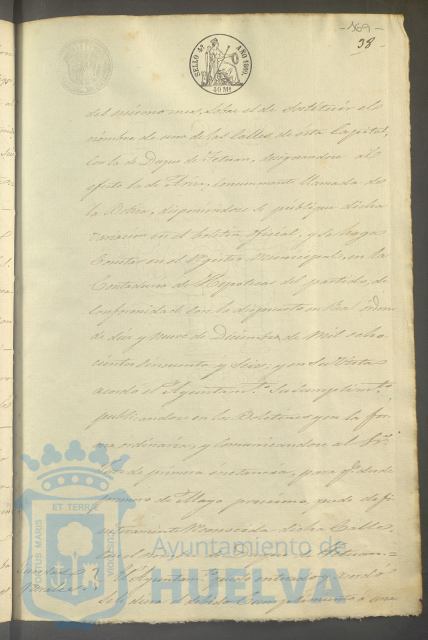 -169-
38-
SELLO 4º AÑO 1860.
40 Ms
del mismo mes, sobre el de sustituir el
nombre de una de las Calles de esta Capital,
con la de Duque de Tetuan, designandose al
efecto la de comunmente llamada de
la Botica, disponiendose se publique dicha
variacion en el boletin oficial, y se haga
constar en el Registro Municipal, en la
Contaduria de Hipotecas del partido, de
conformidad con lo dispuesto en Real orden
de diez y nueve de Diciembre de mil ocho
cientos cincuenta y seis; y en su vista
acordó el Ayuntamto. su cumplimto.
publicandose en los Boletines y en la for
ma ordinaria, y comunicandose al Sr.
de primera instancia, para qe. desde
primero de Mayo procsimo, quede defi
nitivamente conocida dicha Calle
con el nombre de Duque de Tetuan.=
El Ayuntamto. quedó enterado y acordó
se diera el debido cumplimiento a una
PORTUS MARIS ET TERRAE CUSTODIA
Ayuntamiento de
HUELVA